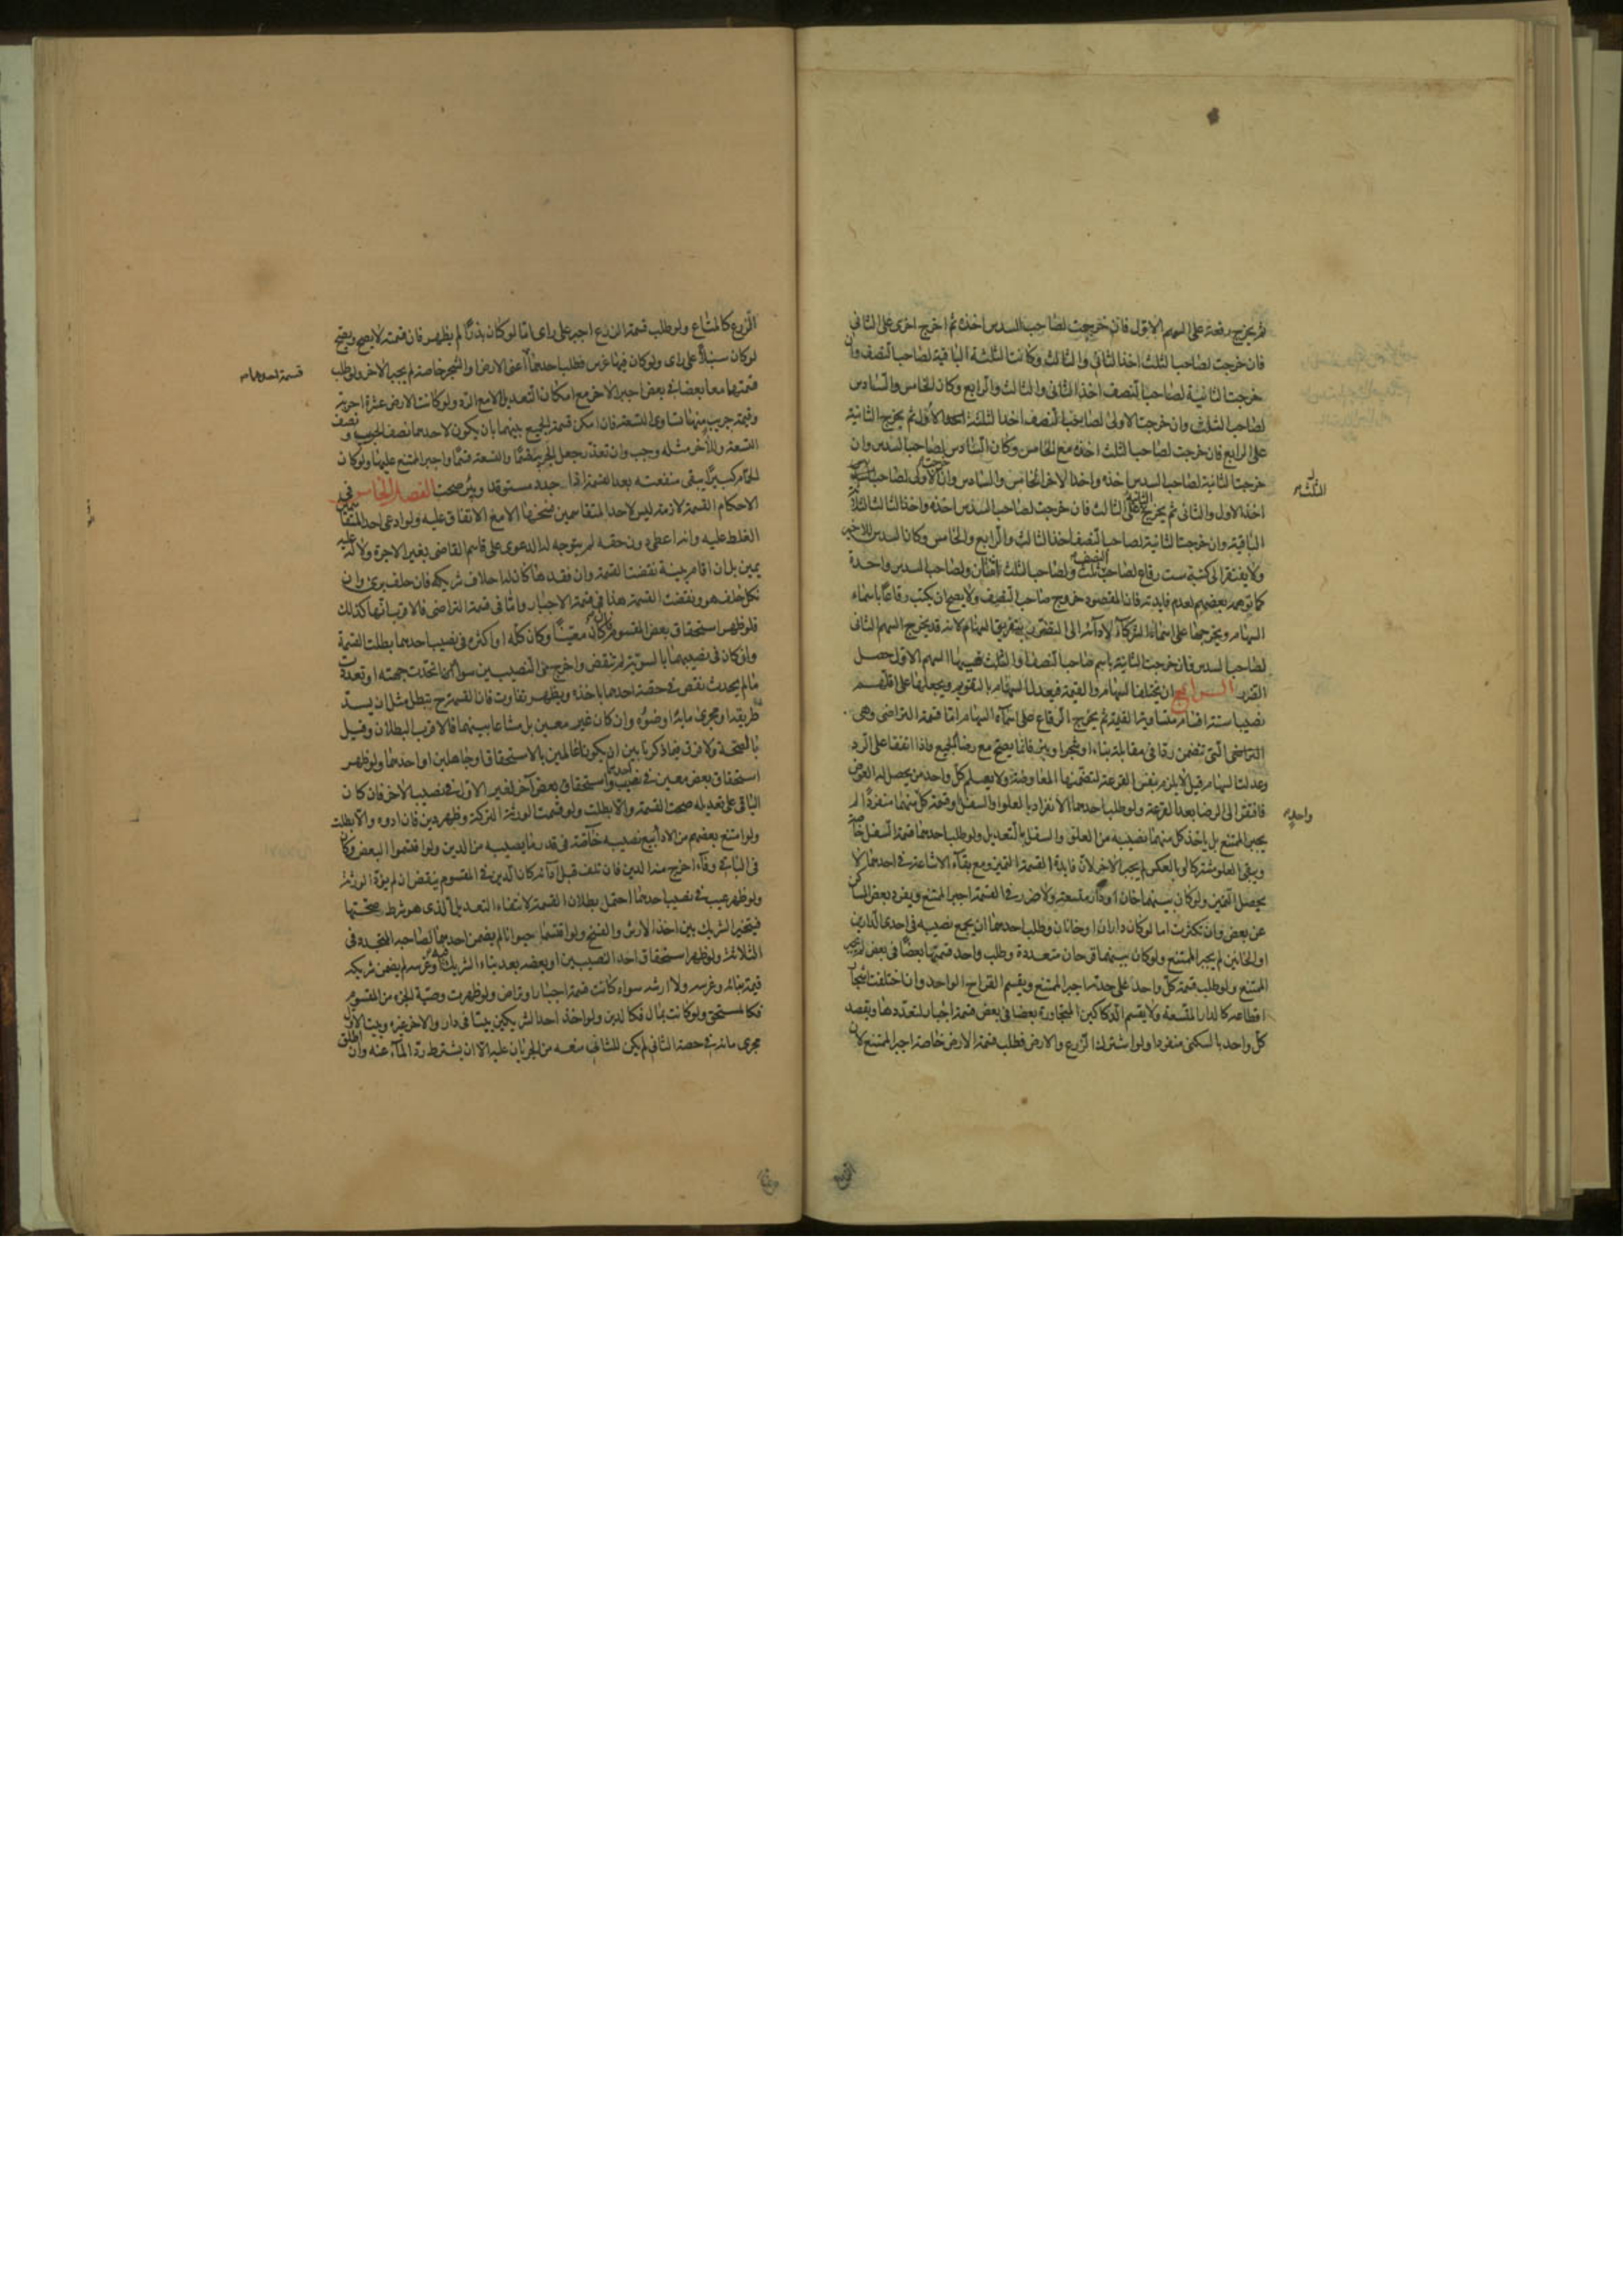 ثم يخرج رقعة على السهم الاول فان خرجت لصاحب السدس اخذه ثم اخرج اخرى على الثاني
فان خرجت لصاحب الثلث اخذ الثاني والثالث وكانت الثلثة الباقية لصاحب النصف وان
خرجت الثانية لصاحب النصف اخذ الثاني والثالث والرابع وكان الخامس والسادس
لصاحب الثلث وان خرجت الاولى لصاحب النصف اخذ الثلثة الاول ثم يخرج الثانية
على الرابع فان خرجت لصاحب الثلث اخذه مع الخامس وكان السادس لصاحب السدس وان
خرجت الثانية لصاحب السدس اخذه واخذ الاخر الخامس والسادس وان خرجت الاولى لصاحب
اخذ الاول والثاني ثم يخرج الثانية على الثالث فان خرجت لصاحب السدس اخذه واخذ الثالث الثلاثة
الباقية وان خرجت الثانية لصاحب النصف اخذ الثالث والرابع والخامس وكان السدس للاخير
ولا يفتقر الى كتبة ست رقاع لصاحب النصف ثلث ولصاحب الثلث اثنتان ولصاحب السدس واحدة
كما توهمه بعضهم لعدم فايدته فان المقصود خروج صاحب النصف ولا يصح ان يكتب رقاعا باسماء
السهام ويخرجها على اسماء الشركاء لادائه الى التفريق السهام لانه قد يخرج السهم الثاني
لصاحب السدس فان خرجت الثانية باسم صاحب النصف او الثلث فيها السهم الاول حصل
الضرر الرابع ان يختلف السهام والقيمة فيعدل السهام بالتقويم ويجعلها على اقلهم
نصيبا ستة اقسام متساوية القيمة ثم يخرج الرقاع على اسماء السهام اما قسمة التراضي وهي
التراضي التي تتضمن ردا في مقابلة بناء او شجر او بئر فانما يصح مع رضا الجميع واذا اتفقا على الرد
وعدلت السهام قيل لا يلزم بنفس القرعة لتضمنها المعاوضة ولا يعلم كل واحد من يحصل له العوض
فافتقر الى الرضا بعد القرعة ولو طلب احدهما الانفراد بالعلو او السفل او قسمة كل منهما منفردا لم
يجبر الممتنع بل ياخذ كل منهما نصيبه من العلو والسفل بالتعديل ولو طلب احدهما قسمة السفل خاصة
ويبقى العلو مشتركا او بالعكس لم يجبر الاخر لان فايدة القسمة التميز ومع بقاء الاشاعة في احدهما لا
يحصل التميز ولو كان بينهما خان او دار متسعة ولا ضرر في القسمة اجبر الممتنع ويفرد بعض المساكن
عن بعض وان تكثرت اما لو كان داران او خانان وطلب احدهما ان يجمع نصيبه في احدى الدارين
او الخانين لم يجبر الممتنع ولو كان بينهما اقرحان متعددة وطلب واحد قسمتها بعضا في بعض لم يجبر
الممتنع ولو طلب قسمة كل واحد على حدته اجبر الممتنع ويقسم القراح الواحد وان اختلفت اشجار
اقطاعه كالدار المتسعة ولا يقسم الدكاكين المتجاورة بعضا في بعض قسمة اجبار لتعددها ويقصد
كل واحد بالسكنى منفردا ولو اشترك الزرع والارض فطلب قسمة الارض خاصة اجبر الممتنع لان
الثلثه
واحد
الزرع كالمتاع ولو طلب قسمة الزرع اجبر على راى اما لو كان بذرا لم يظهر فان قسمته لا يصح ويصح
لو كان سنبلا على راى ولو كان فيها غرس فطلب احدهما اعنى الارض او الشجر خاصة لم يجبر الاخر ولو طلب
قسمتهما معا بعضا في بعض اجبر الاخر مع امكان التعديل لا مع الرد ولو كانت الارض عشرة اجربة
وقيمة جريب منها تساوى التسعة فان امكن قسمة الجميع بينهما بان يكون لاحدهما نصف الجريب ونصف
التسعة وللاخر مثله وجب وان تعذر جعل الجريب قسما والتسعة قسما واجبر الممتنع عليها ولو كان
الحمام كبيرا يبقى منفعته بعد القسمة اذا جدد مستوقد وبئر صحت الفصل الخامس في
الاحكام القسمة لازمة ليس لاحد المتقاسمين فسخها الا مع الاتفاق عليه ولو ادعى احد المتقاسمين
الغلط عليه وانه اعطى دون حقه لم يتوجه له الدعوى على قاسم القاضي بغير الاجرة ولا له عليه
يمين بل ان اقام بينة نقضت القسمة وان فقدها كان له احلاف شريكه فان حلف برى وان
نكل حلف هو ونقضت القسمة هذا في قسمة الاجبار واما في قسمة التراضي فالاقرب انها كذلك
فلو ظهر استحقاق بعض المقسوم فان كان معينا وكان كله او اكثره في نصيب احدهما بطلت القسمة
وان كان في نصيبهما بالسوية لم تنقض واخرج من النصيبين سواء اتحدت جهته او تعددت
ما لم يحدث نقص في حصة احدهما باخذه ويظهر تفاوت فان القسمة ح تبطل مثل ان يسد
طريقه او مجرى مائه او ضوئه وان كان غير معين بل مشاعا بينهما فالاقرب البطلان وقيل
بالصحة ولا فرق فيما ذكرنا بين ان يكونا عالمين بالاستحقاق او جاهلين او احدهما ولو ظهر
استحقاق بعض معين في نصيب احدهما واستحقاق بعض آخر لغير الاول في نصيب الاخر فان كان
الباقي على تعديله صحت القسمة والا بطلت ولو قسمت الورثة التركة وظهر دين فان ادوه والا بطلت
ولو امتنع بعضهم من الاداء بيع نصيبه خاصة في قدر ما يصيبه من الدين ولو اقتسموا البعض وكان
في الباقي وفاء اخرج منه الدين فان تلف قبل ادائه كان الدين في المقسوم ينقض ان لم يؤد الورثة
ولو ظهر عيب في نصيب احدهما احتمل بطلان القسمة لانتفاء التعديل الذي هو شرط صحتها
فيتخير الشريك بين اخذ الارش والفسخ ولو اقتسما حيوانا لم يضمن احدهما لصاحبه المتجدد في
الثلاثة ولو ظهر استحقاق احد النصيبين او بعضه بعد بناء الشريك فيه وغرسه لم يضمن شريكه
قيمة بنائه وغرسه ولا ارشه سواء كانت قسمة اجبار او تراض ولو ظهرت وصية بجزء من المقسوم
فكالمستحق ولو كانت بمال فكالدين ولو اخذ احد الشريكين بيتا في دار والاخر غيره وبيت الاول
مجرى مائه في حصة الثاني لم يكن للثاني منعه من الجريان عليه الا ان يشترط رد الماء عنه وان اطلق
قسمة احدهما